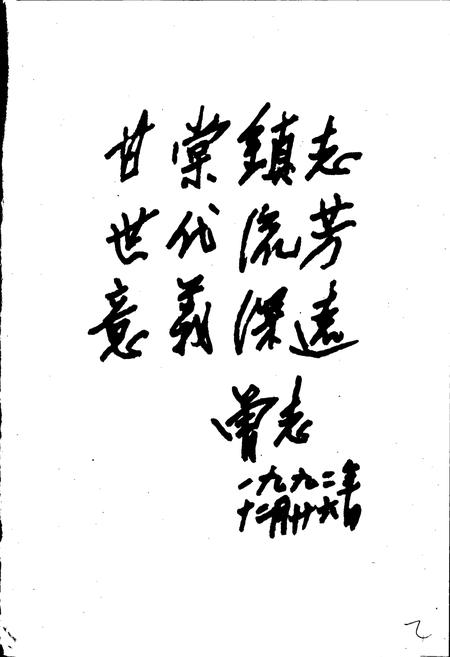 甘棠鎮志
世代流芳
意義深遠
曾志
一九九二年
十二月廿六日